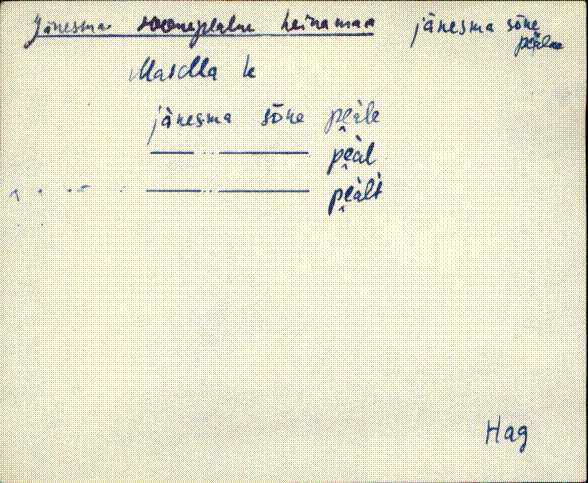 Jänesma soonepealne heinamaa jänesma sõne pealne
Masdla k
jänesma sõne peäle
—— " —— peäl
—— " —— peält
Hag